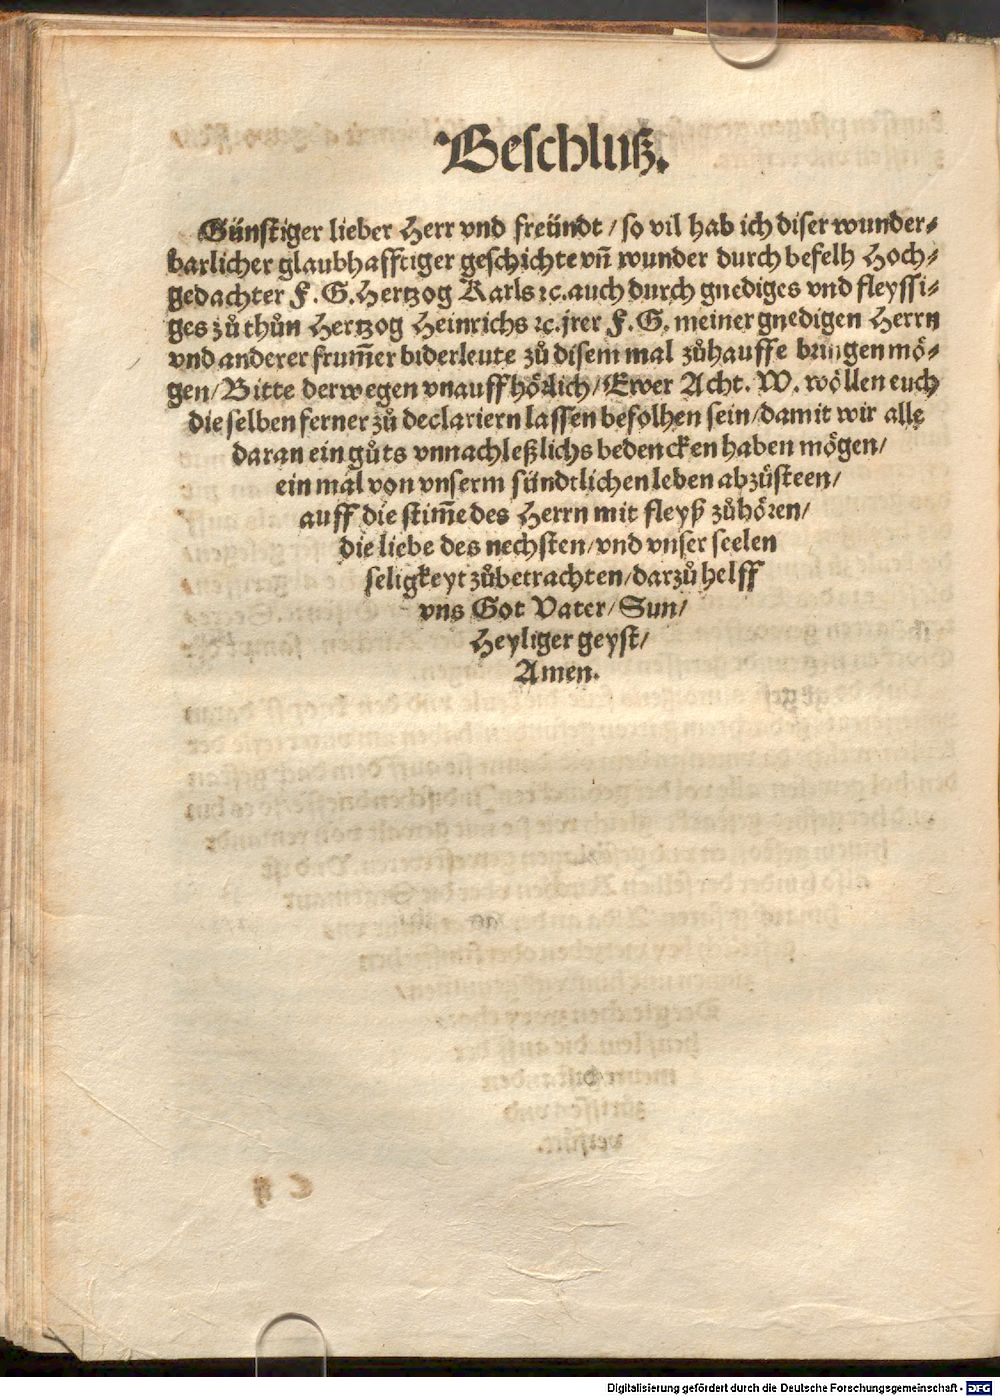 Beschluß.
Günstiger lieber Herr vnd freündt / so vil hab ich diser wunder⸗
barlicher glaubhafftiger geschichte vñ wunder durch befelh Hoch⸗
gedachter F. G. Hertzog Karls ꝛc. auch durch gnediges vnd fleyssi⸗
ges zů thůn Hertzog Heinrichs ꝛc. jrer F. G. meiner gnedigen Herrn
vnd anderer frum̃er biderleute zů disem mal zůhauffe bringen mö⸗
gen / Bitte derwegen vnauffhörlich / Ewer Acht. W. wöllen euch
die selben ferner zů declariern lassen befolhen sein / damit wir alle
daran ein gůts vnnachleßlichs bedencken haben mögen /
ein mal von vnserm sündtlichen leben abzůsteen /
auff die stim̃e des Herrn mit fleyß zůhören /
die liebe des nechsten / vnd vnser seelen
seligkeyt zůbetrachten / darzů helff
vns Got Vater / Sun /
Heyliger geyst /
Amen.
Digitalisierung gefördert durch die Deutsche Forschungsgemeinschaft - DFG